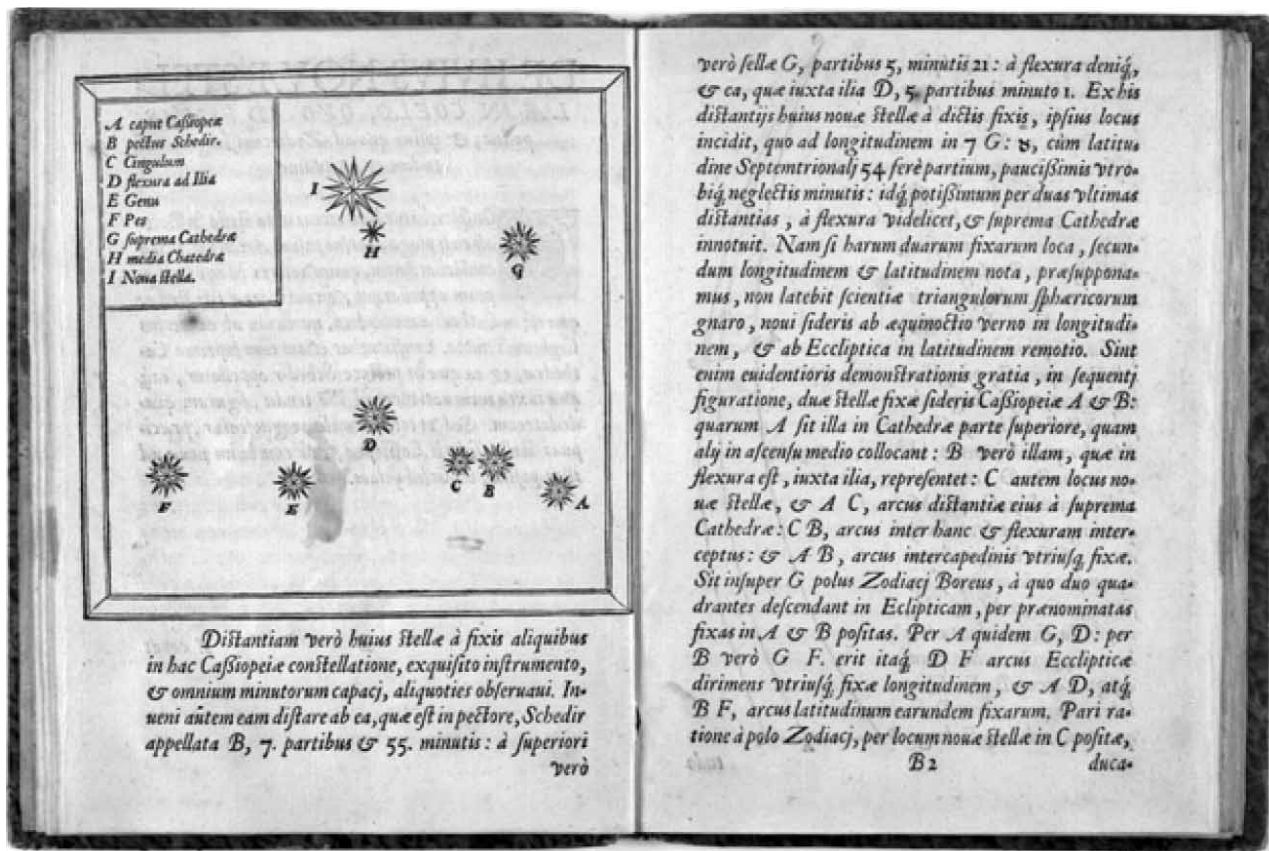 A caput Cassiopeæ
B pectus Schedir.
C Cingulum
D flexura ad Ilia
E Genu
F Pes
G suprema Cathedræ
H media Chatedræ
I Noua stella.
I
H
G
D
C
B
F
E
A
Distantiam verò huius stellæ à fixis aliquibus
in hac Cassiopeiæ constellatione, exquisito instrumento,
& omnium minutorum capacj, aliquoties obseruaui. In-
ueni autem eam distare ab ea, quæ est in pectore, Schedir
appellata B, 7. partibus & 55. minutis: à superiori
verò
verò stellæ G, partibus 5, minutis 21: à flexura deniq́,
& ea, quæ iuxta ilia D, 5. partibus minuto 1. Ex his
distantijs huius nouæ stellæ à dictis fixis, ipsius locus
incidit, quo ad longitudinem in 7 G: ♉, cùm latitu-
dine Septemtrionalj 54 ferè partium, paucissimis vtro-
biq́ neglectis minutis: idq́ potissimum per duas vltimas
distantias, à flexura videlicet, & suprema Cathedræ
innotuit. Nam si harum duarum fixarum loca, secun-
dum longitudinem & latitudinem nota, præsuppona-
mus, non latebit scientiæ triangulorum sphæricorum
gnaro, noui sideris ab æquinoctio verno in longitudi-
nem, & ab Eccliptica in latitudinem remotio. Sint
enim euidentioris demonstrationis gratia, in sequentj
figuratione, duæ stellæ fixæ sideris Cassiopeiæ A & B:
quarum A sit illa in Cathedræ parte superiore, quam
alij in ascensu medio collocant: B verò illam, quæ in
flexura est, iuxta ilia, repræsentet: C autem locus no-
uæ stellæ, & A C, arcus distantiæ eius à suprema
Cathedræ: C B, arcus inter hanc & flexuram inter-
ceptus: & A B, arcus intercapedinis vtriusq́ fixæ.
Sit insuper G polus Zodiacj Boreus, à quo duo qua-
drantes descendant in Eclipticam, per prænominatas
fixas in A & B positas. Per A quidem G, D: per
B verò G F. erit itaq́ D F arcus Ecclipticæ
dirimens vtriusq́ fixæ longitudinem, & A D, atq́
B F, arcus latitudinum earundem fixarum. Pari ra-
tione à polo Zodiacj, per locum nouæ stellæ in C positæ,
B2 duca-